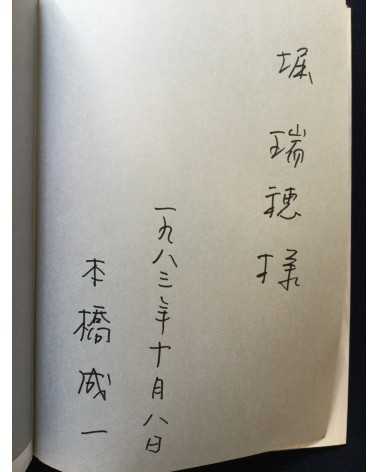 堀 瑞穂 様
一九八三年十月八日
本橋成一